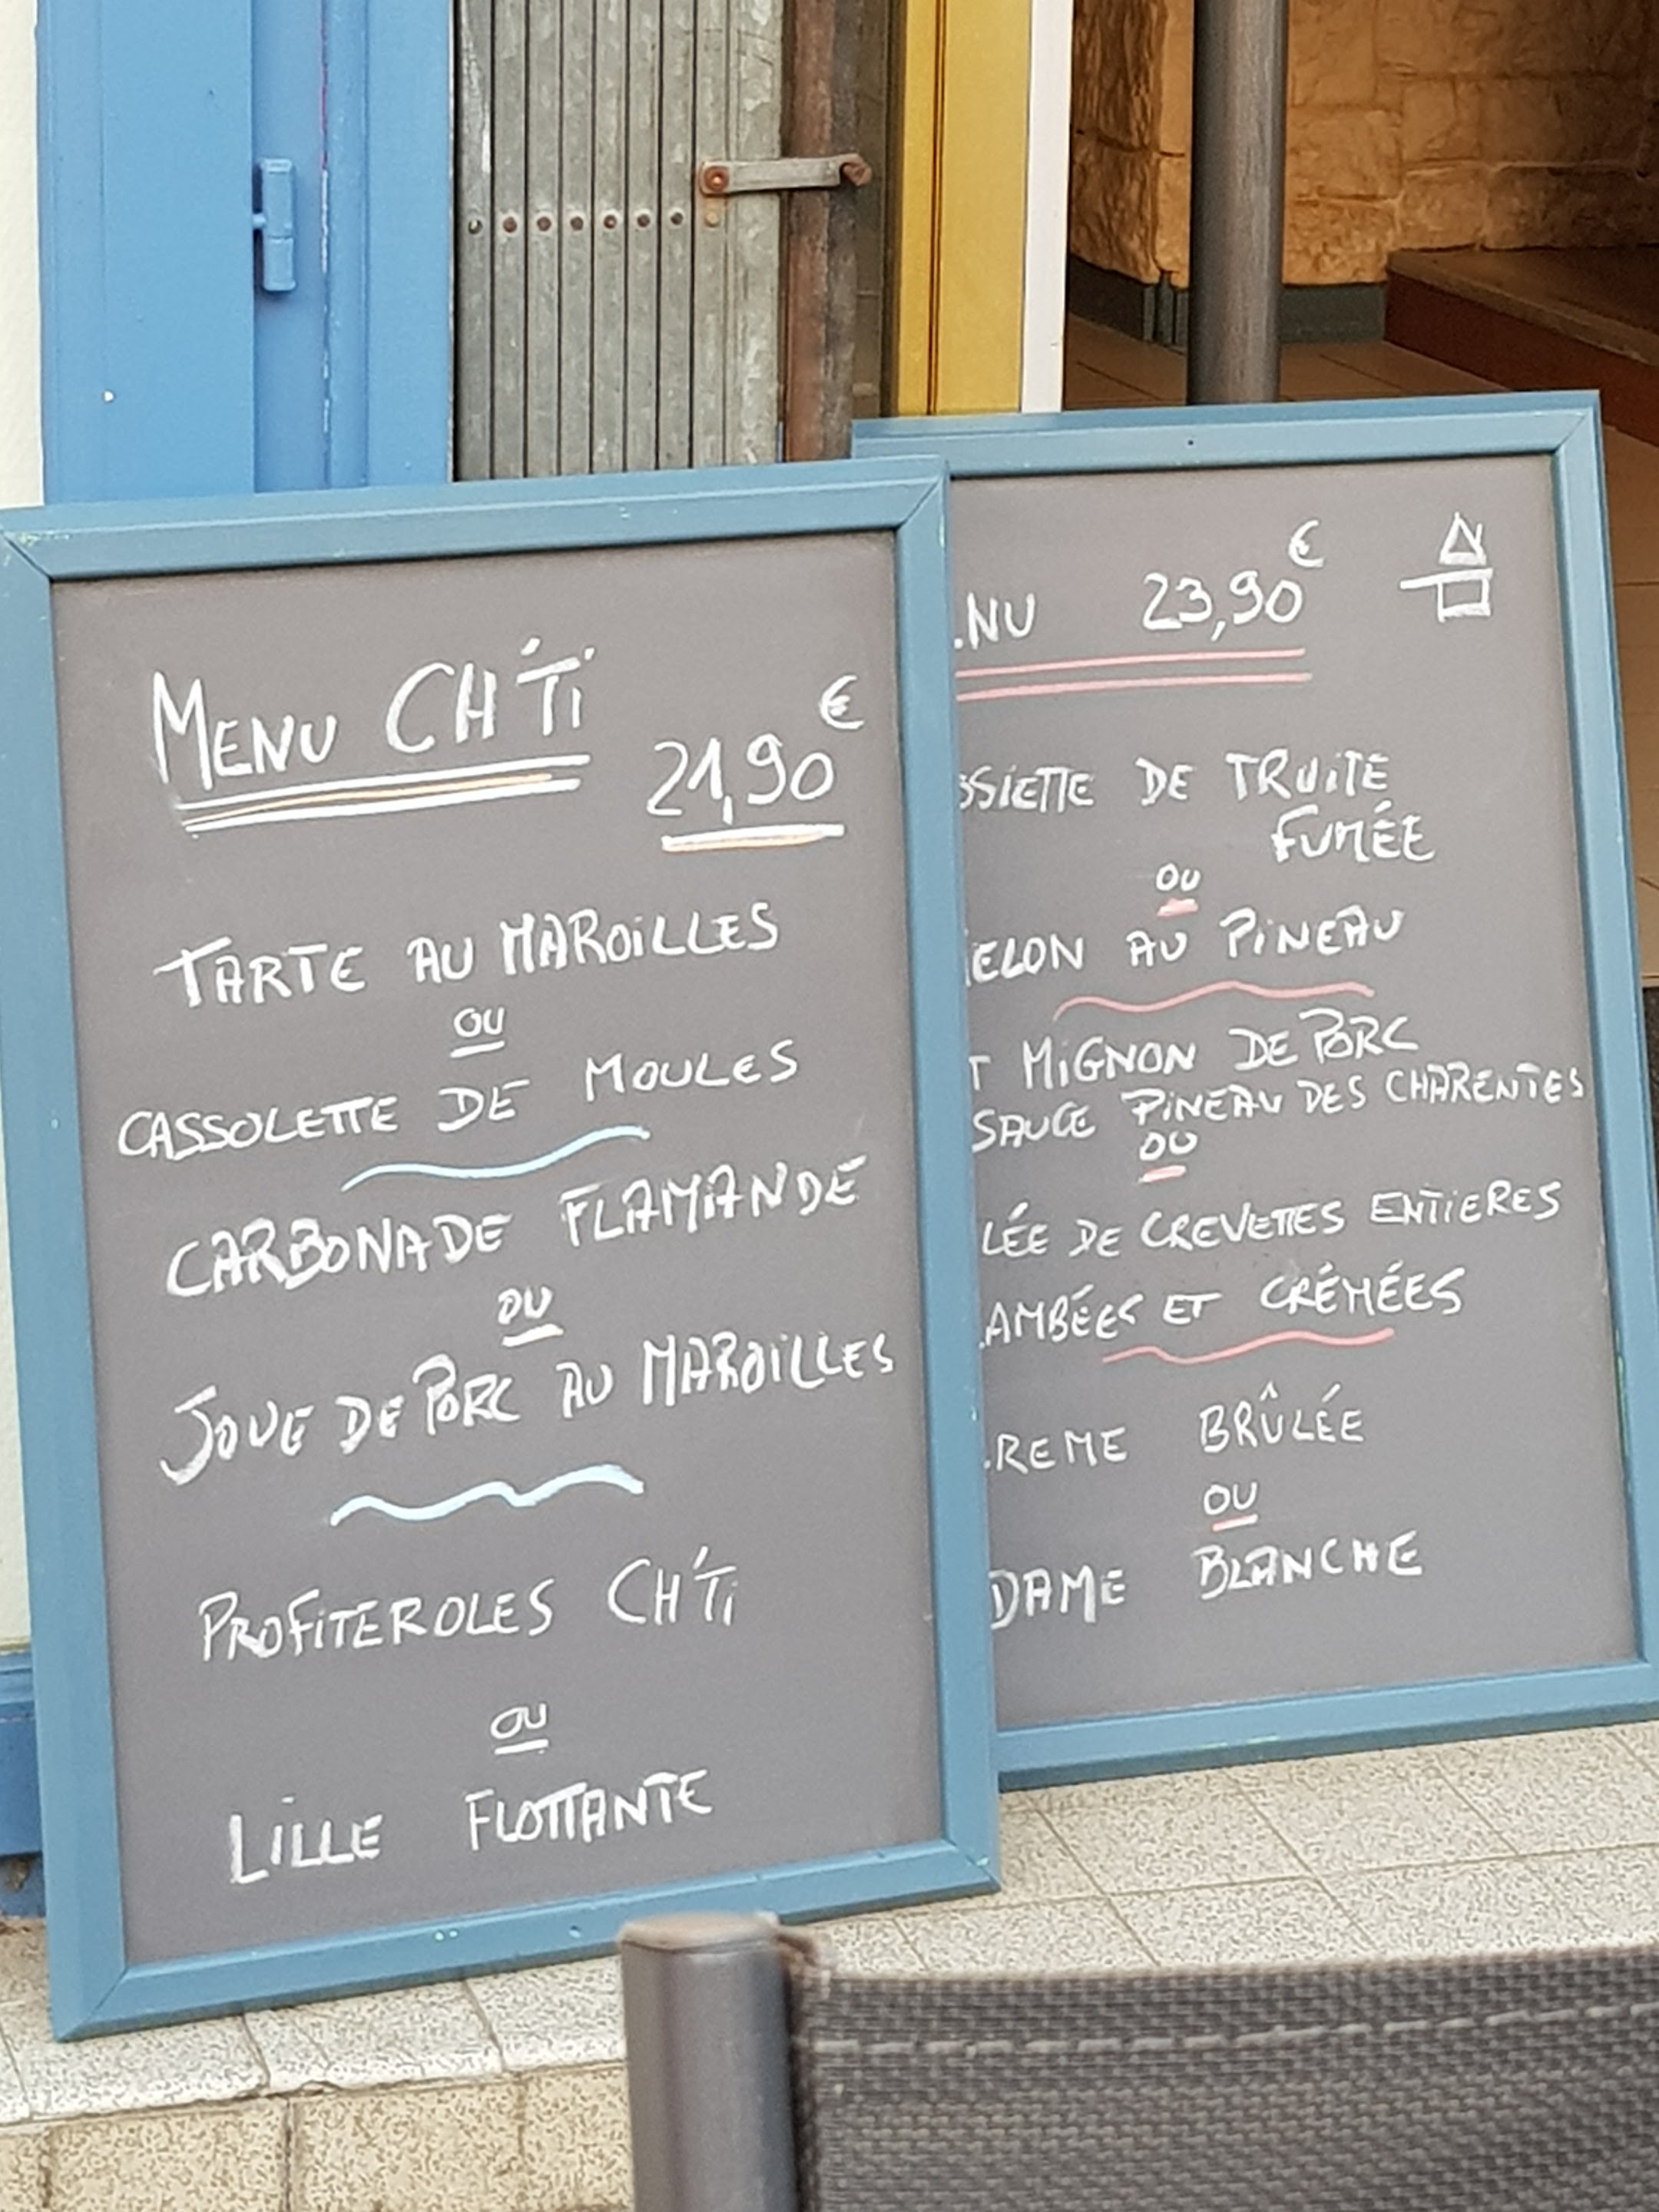 MENU CH'Ti
21,90€
TARTE AU MAROiLLES
OU
CASSOLETTE DE MOULES
CARBONADE FLAMANDE
OU
JOUE DE PORC AU MAROiLLES
PROFiTEROLES CH'Ti
OU
LiLLE FLOTTANTE
NU 23,90€
SSIETTE DE TRUiTE
FUMÉE
OU
ELON AU PiNEAU
T MiGNON DE PORC
SAUCE PiNEAU DES CHARENTES
OU
LÉE DE CREVETTES ENTiERES
AMBÉES ET CRÉMÉES
REME BRÛLÉE
OU
DAME BLANCHE